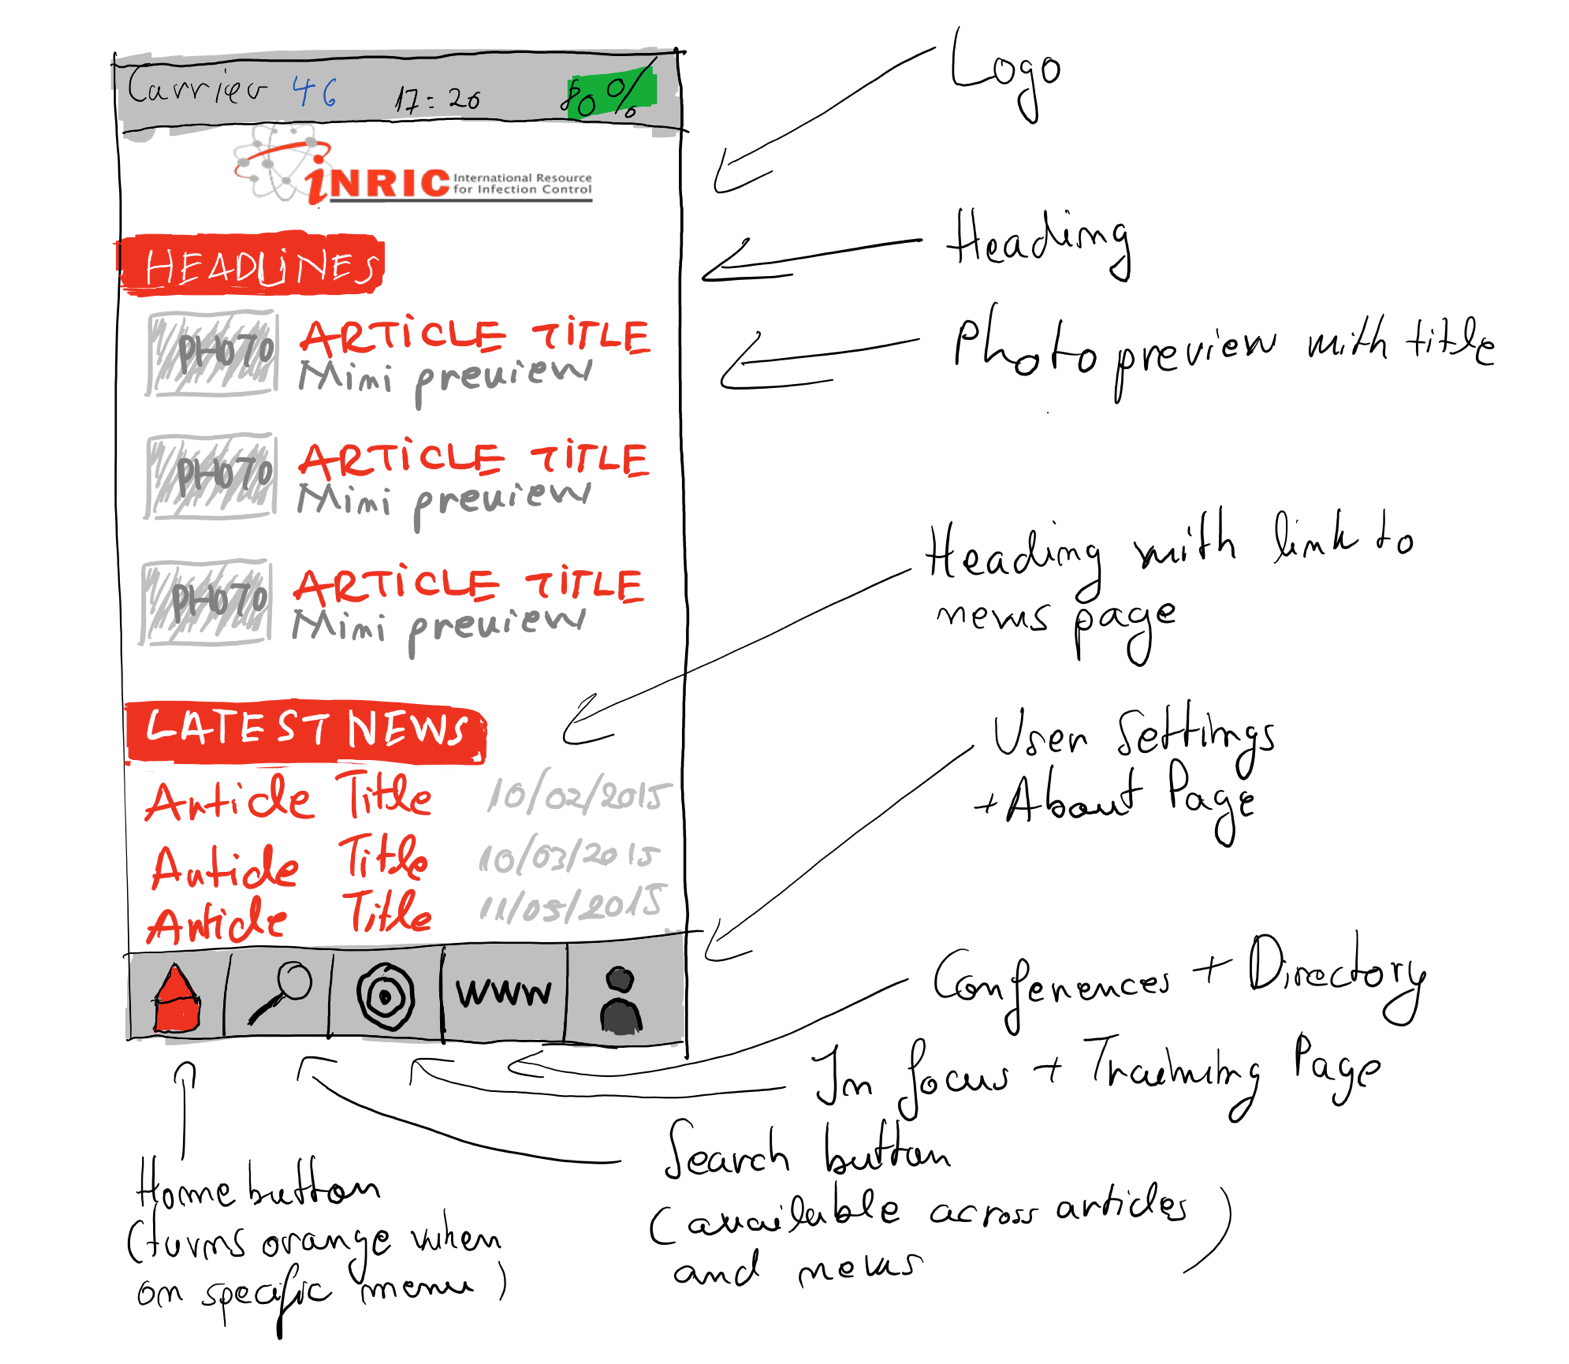 Carrier 4G 17:20 80%
iNRIC International Resource
for Infection Control
HEADLINES
PHOTO ARTICLE TITLE
Mini preview
PHOTO ARTICLE TITLE
Mini preview
PHOTO ARTICLE TITLE
Mini preview
LATEST NEWS
Article Title 10/02/2015
Article Title 10/03/2015
Article Title 11/05/2015
www
Logo
Heading
Photo preview with title
Heading with link to
news page
User Settings
+ About Page
Conferences + Directory
In focus + Training Page
Search button
(available across articles
and news)
Home button
(turns orange when
on specific menu)